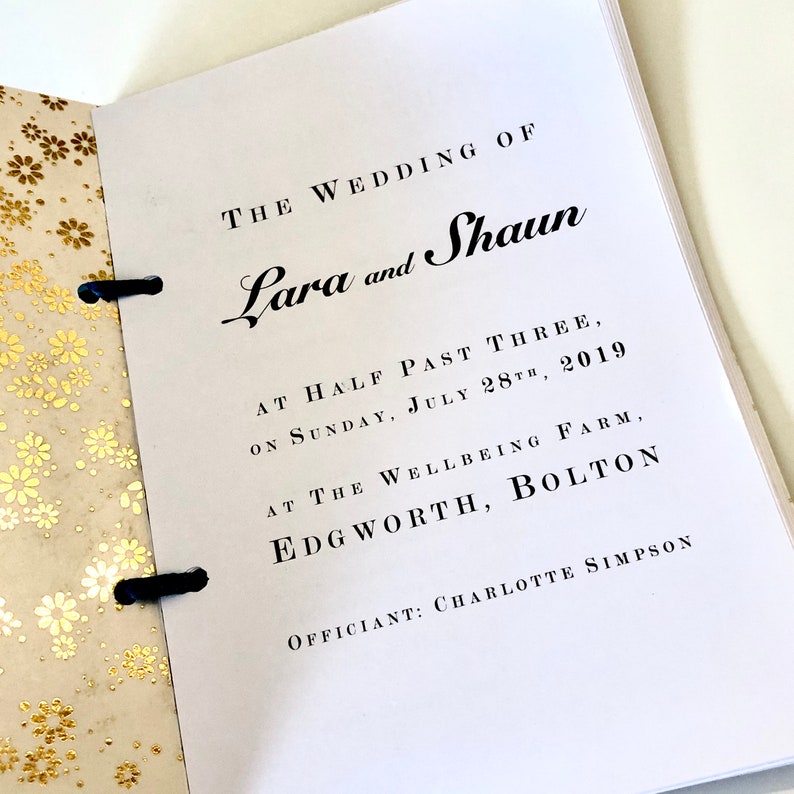 The Wedding of
Lara and Shaun
at Half Past Three,
on Sunday, July 28th, 2019
at The Wellbeing Farm,
Edgworth, Bolton
Officiant: Charlotte Simpson